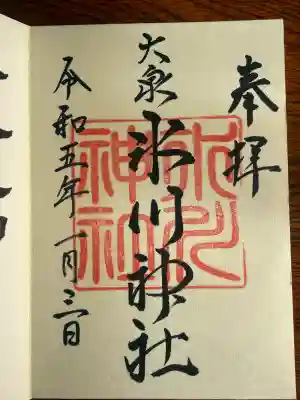 奉拝
大泉
氷川神社
令和五年十一月三日
氷川
神社